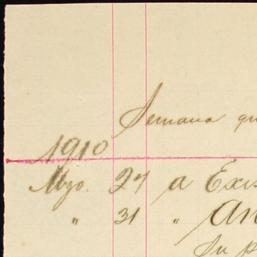 Semana qu
1910
Mzo. 27 a Exis
" 31 " An
Su p